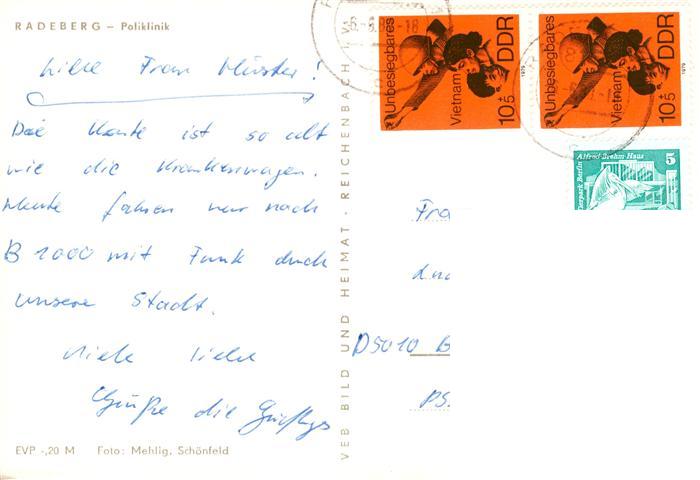 RADEBERG – Poliklinik
Liebe Frau Müster!
Die Karte ist so alt
wie die Krankenwagen.
Heute fahren nur noch
B 1000 mit Funk durch
unsere Stadt.
Viele liebe
Grüße die
EVP -,20 M Foto: Mehlig, Schönfeld
VEB BILD UND HEIMAT · REICHENBACH I. V.
Unbesiegbares
Vietnam
DDR
10+5
1979
Unbesiegbares
Vietnam
DDR
10+5
1979
Alfred Brehm Haus
5
Tierpark Berlin
Fra
D5010